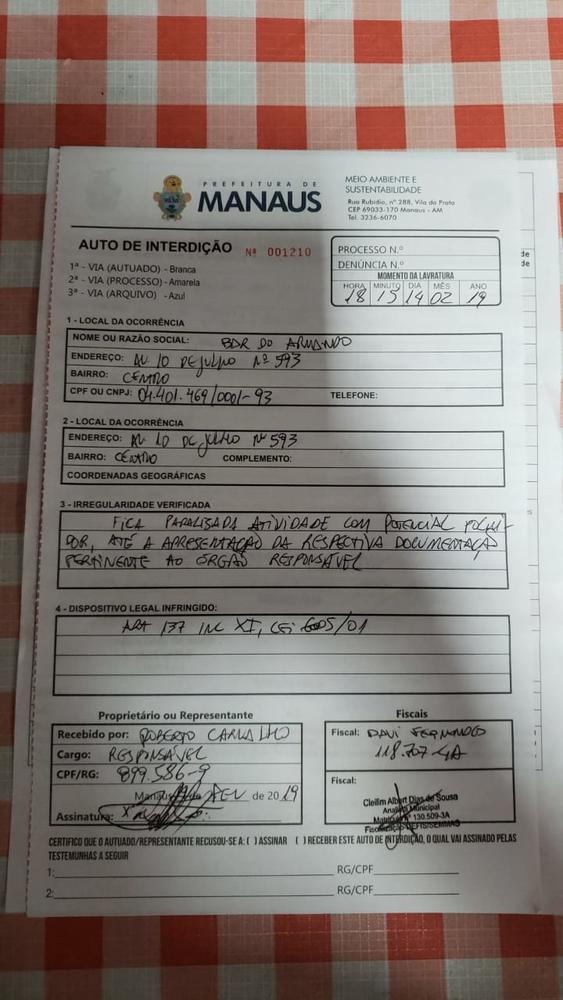 PREFEITURA DE
MANAUS
MEIO AMBIENTE E
SUSTENTABILIDADE
Rua Rubídio, nº 288, Vila da Prata
CEP 69033-170 Manaus - AM
Tel. 3236-6070
AUTO DE INTERDIÇÃO Nº 001210
1ª - VIA (AUTUADO) - Branca
2ª - VIA (PROCESSO) - Amarela
3ª - VIA (ARQUIVO) - Azul
PROCESSO N.º
DENÚNCIA N.º
MOMENTO DA LAVRATURA
HORA MINUTO DIA MÊS ANO
18 15 14 02 19
1 - LOCAL DA OCORRÊNCIA
NOME OU RAZÃO SOCIAL: BAR DO ARMANDO
ENDEREÇO: AV. 10 DE JULHO Nº 593
BAIRRO: CENTRO
CPF OU CNPJ: 04.401.469/0001-93 TELEFONE:
2 - LOCAL DA OCORRÊNCIA
ENDEREÇO: AV. 10 DE JULHO Nº 593
BAIRRO: CENTRO COMPLEMENTO:
COORDENADAS GEOGRÁFICAS
3 - IRREGULARIDADE VERIFICADA
FICA PARALISADA ATIVIDADE COM POTENCIAL POLUI-
DOR, ATÉ A APRESENTAÇÃO DA RESPECTIVA DOCUMENTAÇÃO
PERTINENTE AO ÓRGÃO RESPONSÁVEL
4 - DISPOSITIVO LEGAL INFRINGIDO:
ART 137 INC XI, LEI 605/01
Proprietário ou Representante
Recebido por: ROBERTO CARVALHO
Cargo: RESPONSÁVEL
CPF/RG: 899.586-9
Manaus, 14 FEV de 2019
Assinatura:
Fiscais
Fiscal: DAVI FERNANDO
118.707-4A
Fiscal:
Cleilim Albert Dias de Sousa
Analista Municipal
Matrícula Nº 130.509-3A
Fiscalização DEFIS/SEMMAS
CERTIFICO QUE O AUTUADO/REPRESENTANTE RECUSOU-SE A: ( ) ASSINAR ( ) RECEBER ESTE AUTO DE INTERDIÇÃO, O QUAL VAI ASSINADO PELAS
TESTEMUNHAS A SEGUIR
1: RG/CPF
2: RG/CPF